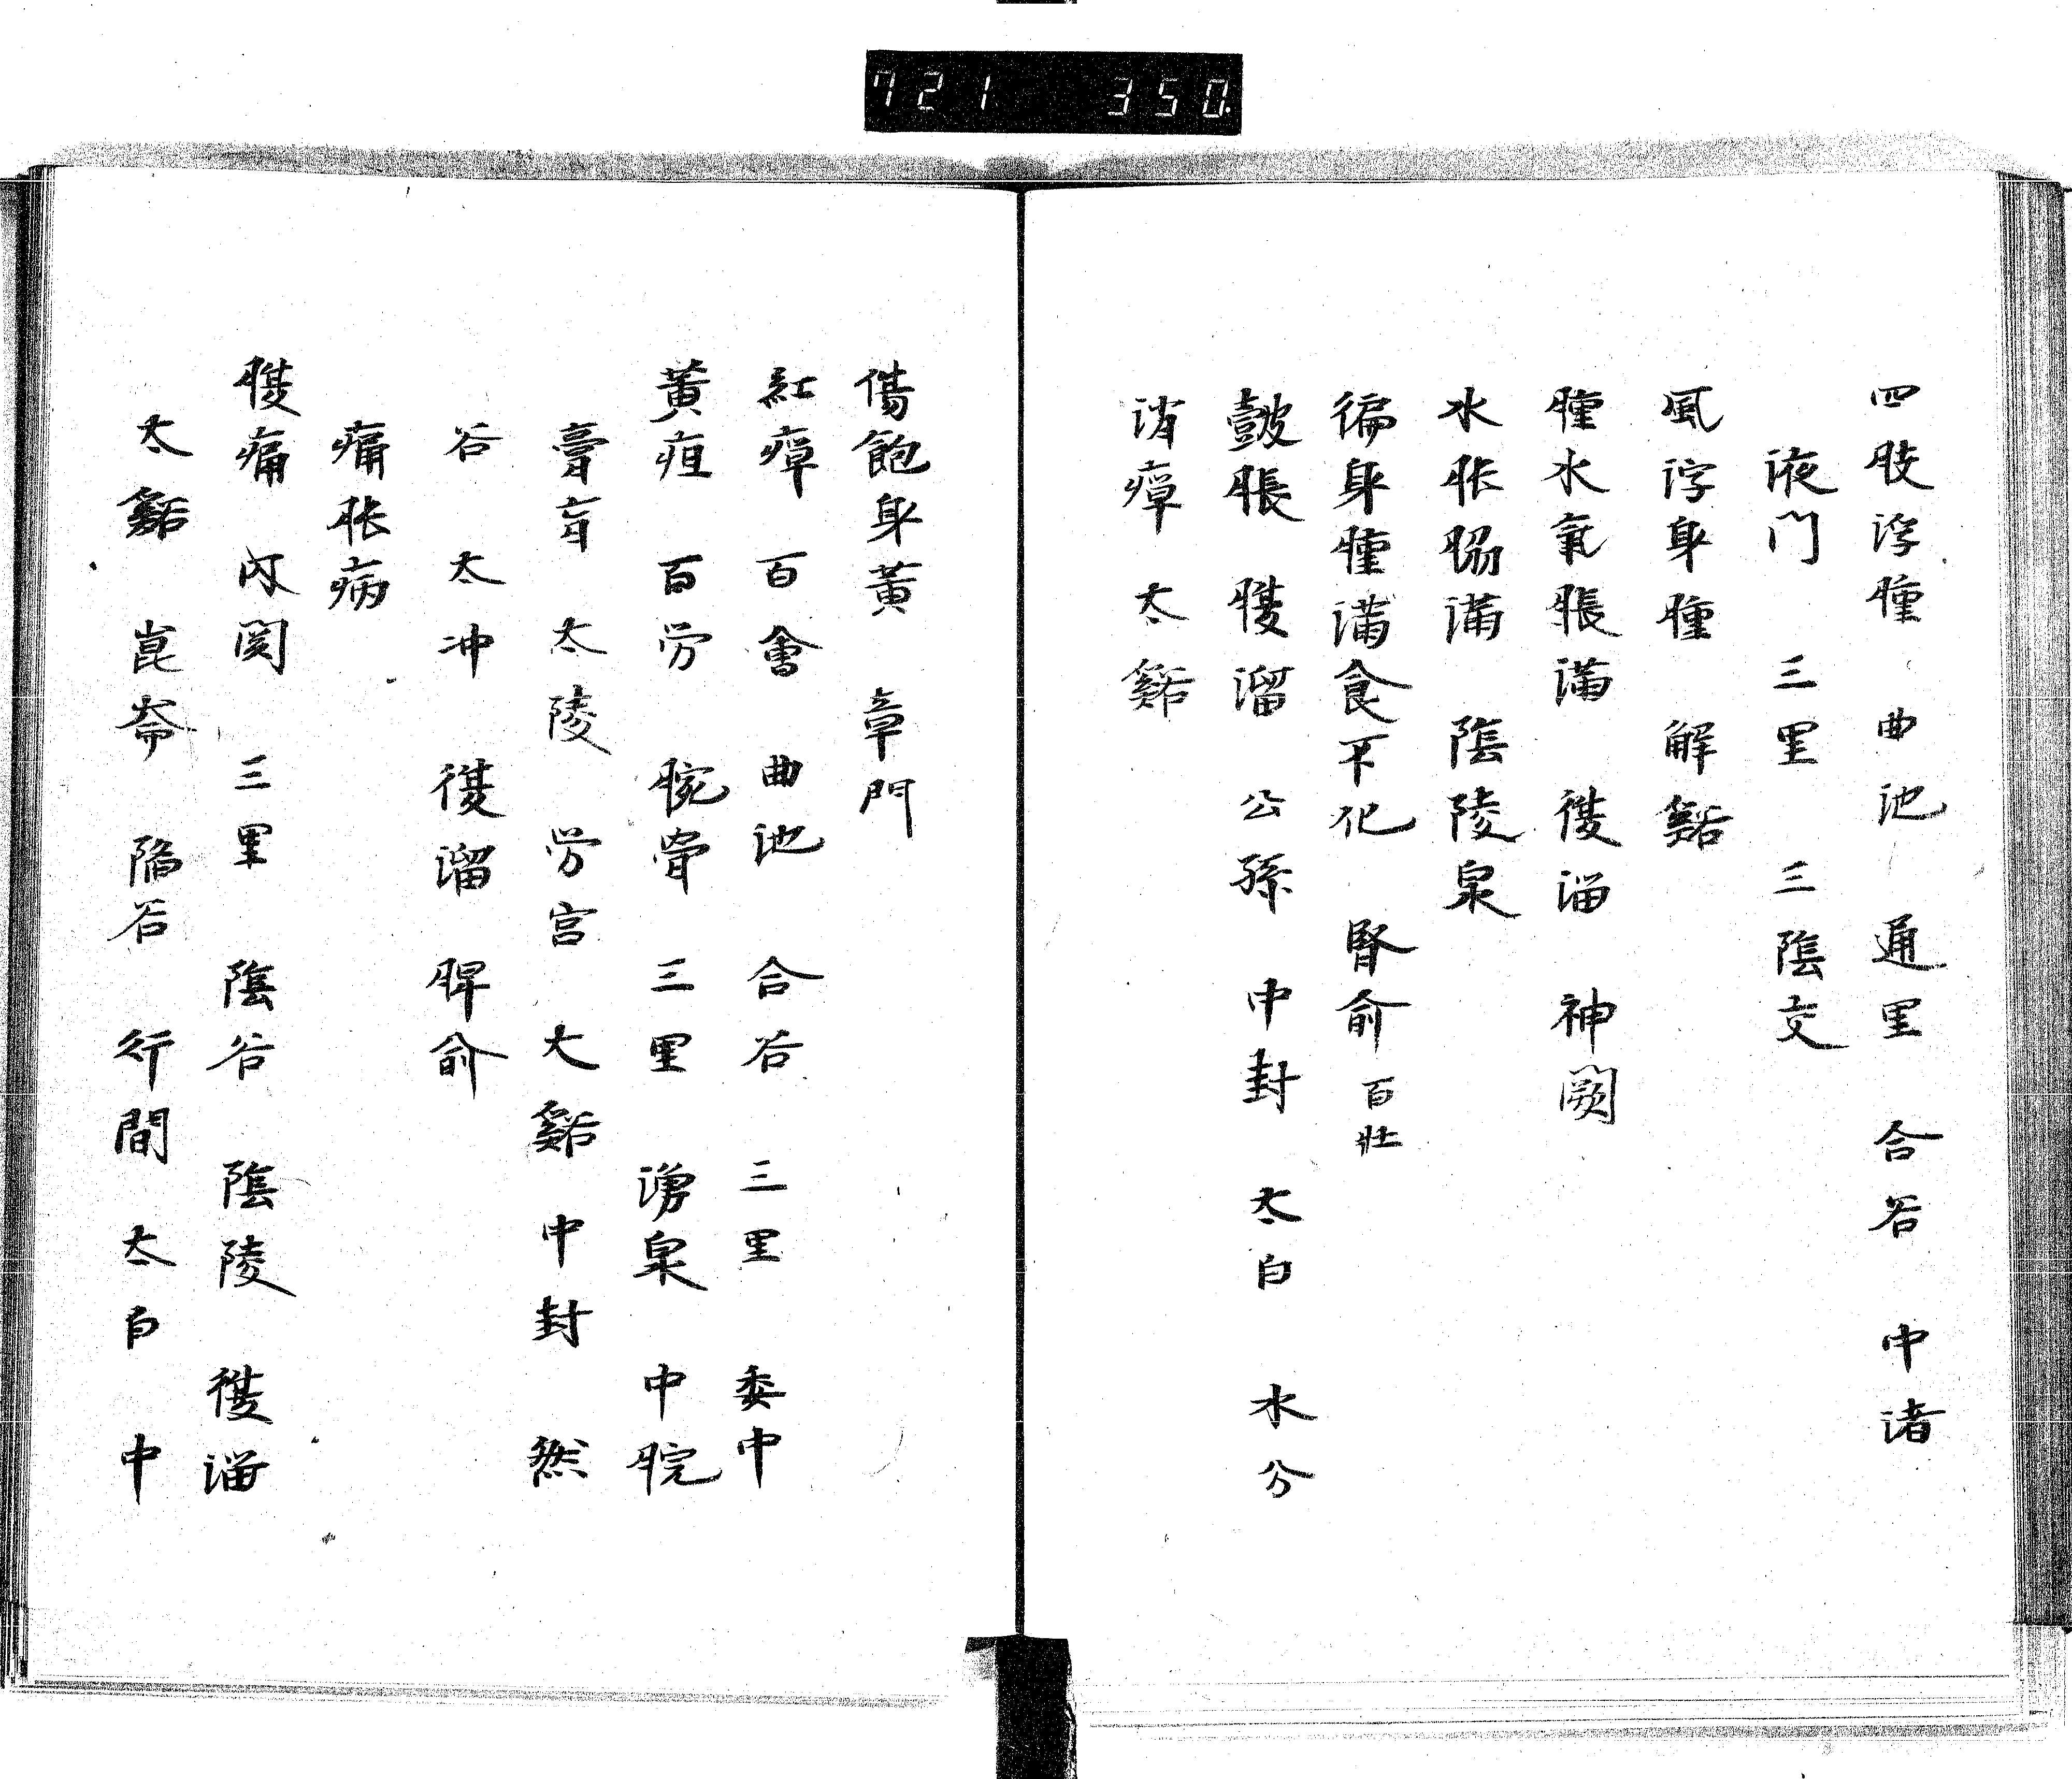 721 350
四肢浮腫 曲池 通里 合谷 中渚
液門 三里 三陰交
風浮身腫 解谿
腫水氣脹滿 復溜 神闕
水脹脇滿 陰陵泉
徧身腫滿食不化 腎俞 百壮
皷脹 腹溜 公孫 中封 太白 水分
消瘴 太谿
傷飽身黃 章門
紅瘴 百會 曲池 合谷 三里 委中
黃疸 百労 腕骨 三里 湧泉 中脘
膏肓 太陵 労宮 大谿 中封 然
谷 太冲 復溜 脾俞
痛脹病
腹痛 内関 三里 陰谷 陰陵 復溜
太谿 崑崙 陷谷 行間 太白 中